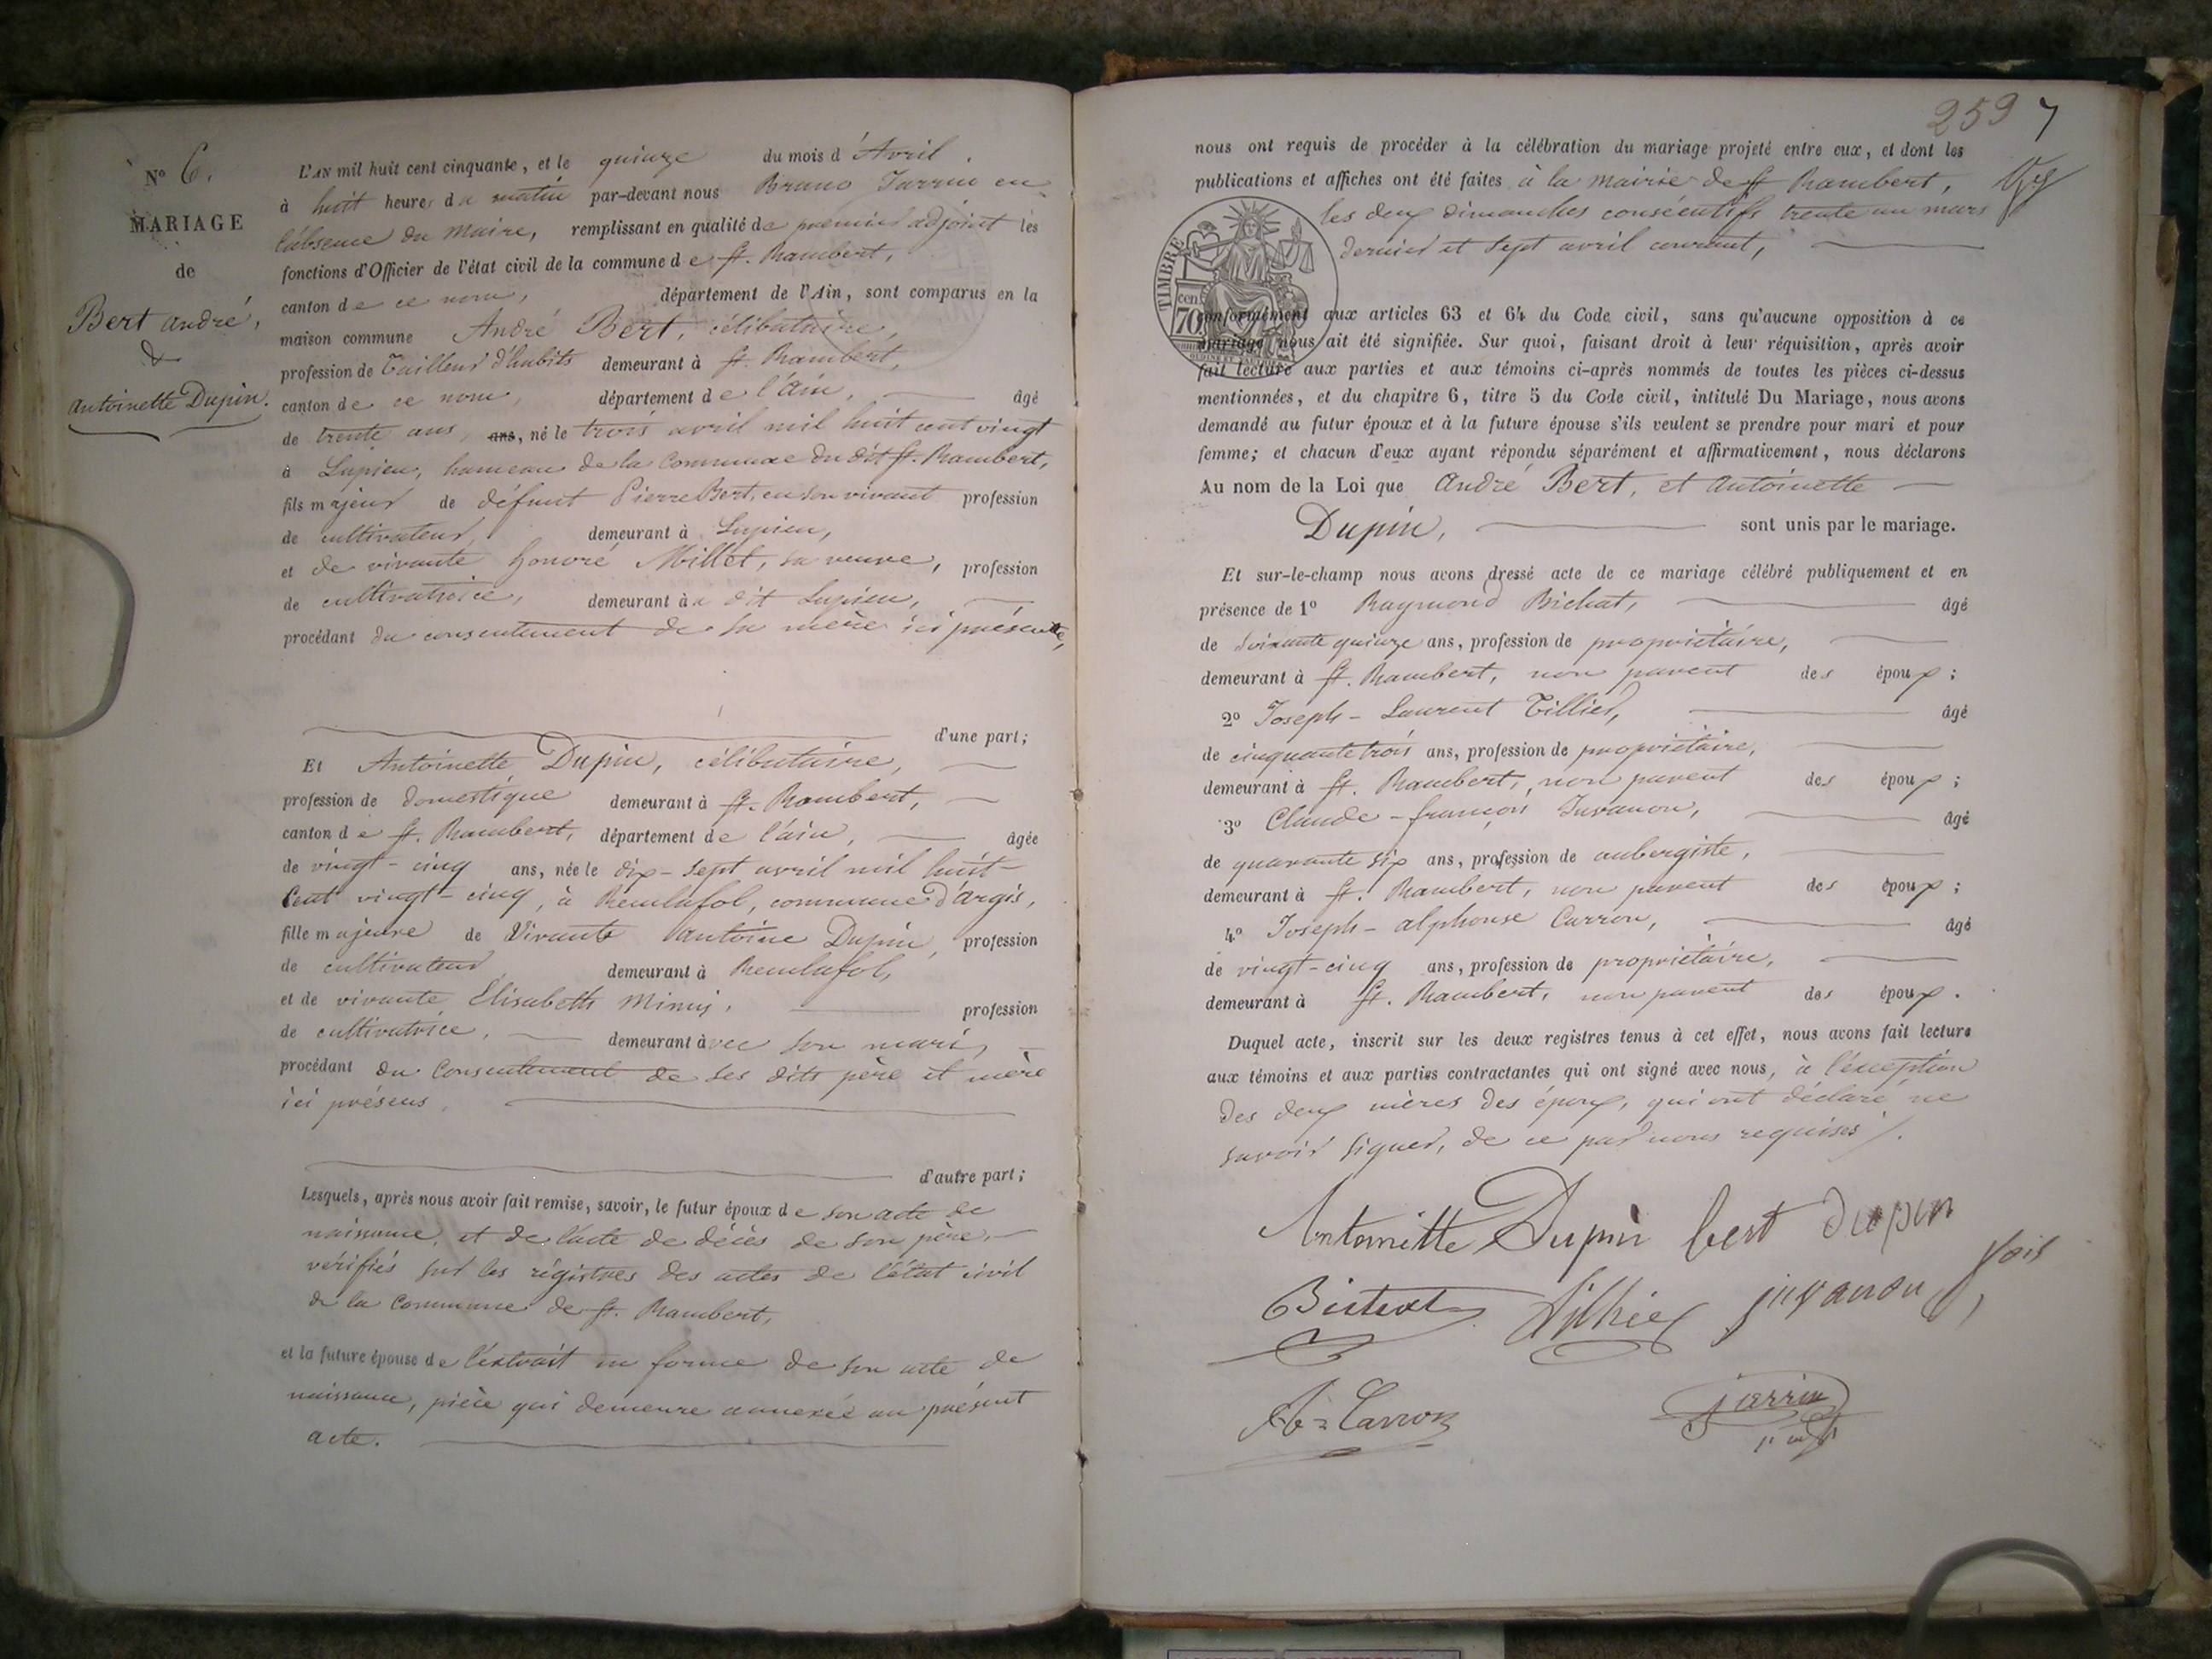 N° 6.
MARIAGE
de
Bert André,
&
Antoinette Dupin.
L'AN mil huit cent cinquante, et le quinze du mois d'Avril,
à huit heures du matin par-devant nous Bruno Jarrin en
l'absence du Maire, remplissant en qualité de premier adjoint les
fonctions d'Officier de l'état civil de la commune de St. Rambert,
canton de ce nom, département de l'Ain, sont comparus en la
maison commune André Bert, célibataire,
profession de Tailleur d'habits demeurant à St. Rambert,
canton de ce nom, département de l'Ain, âgé
de trente ans, ans, né le trois avril mil huit cent vingt
à Lupieu, hameau de la Commune du dit St. Rambert,
fils majeur de défunt Pierre Bert, en son vivant profession
de cultivateur, demeurant à Lupieu,
et de vivante honoré Millet, sa veuve, profession
de cultivatrice, demeurant au dit Lupieu,
procédant du consentement de sa mère ici présente,
d'une part;
Et Antoinette Dupin, célibataire,
profession de domestique demeurant à St. Rambert,
canton de St. Rambert, département de l'ain, âgée
de vingt-cinq ans, née le dix-sept avril mil huit-
Cent vingt-cinq, à Reculafol, commune d'argis,
fille majeure de Vivants Antoine Dupin, profession
de cultivateur demeurant à Reculafol,
et de vivante Elisabeth profession
de cultivatrice, demeurant avec son mari,
procédant du Consentement de ses dits père et mère
ici présens,
d'autre part;
Lesquels, après nous avoir fait remise, savoir, le futur époux de son acte de
naissance, et de l'acte de décès de son père,
vérifiés sur les régistres des actes de l'état civil
de la Commune de St. Rambert,
et la future épouse de l'extrait en forme de son acte de
naissance, pièce qui demeure annexée au présent
acte.
259 7
nous ont requis de procéder à la célébration du mariage projeté entre eux, et dont les
publications et affiches ont été faites à la Mairie de St Rambert,
les deux dimanches consécutifs trente un mars
dernier et sept avril courant,
TIMBRE
cen.
70
conformément aux articles 63 et 64 du Code civil, sans qu'aucune opposition à ce
mariage nous ait été signifiée. Sur quoi, faisant droit à leur réquisition, après avoir
fait lecture aux parties et aux témoins ci-après nommés de toutes les pièces ci-dessus
mentionnées, et du chapitre 6, titre 5 du Code civil, intitulé Du Mariage, nous avons
demandé au futur époux et à la future épouse s'ils veulent se prendre pour mari et pour
femme; et chacun d'eux ayant répondu séparément et affirmativement, nous déclarons
Au nom de la Loi que André Bert, et Antoinette
Dupin, sont unis par le mariage.
Et sur-le-champ nous avons dressé acte de ce mariage célébré publiquement et en
présence de 1° Raymond Bichat, âgé
de soixante quinze ans, profession de propriétaire,
demeurant à St. Rambert, non parent des époux;
2° Joseph-Laurent Tillier, âgé
de cinquante trois ans, profession de propriétaire,
demeurant à St. Rambert, non parent des époux;
3° Claude-françois Juvanon, âgé
de quarante six ans, profession de aubergiste,
demeurant à St. Rambert, non parent des époux;
4° Joseph-alphonse Carron, âgé
de vingt-cinq ans, profession de propriétaire,
demeurant à St. Rambert, non parent des époux.
Duquel acte, inscrit sur les deux registres tenus à cet effet, nous avons fait lecture
aux témoins et aux parties contractantes qui ont signé avec nous, à l'exception
des deux mères des époux, qui ont déclaré ne
savoir signer, de ce par nous requises.
Antoinette Dupin bert dupin
Bichat Tillier juvanon fois
Ae=Carron jarrin